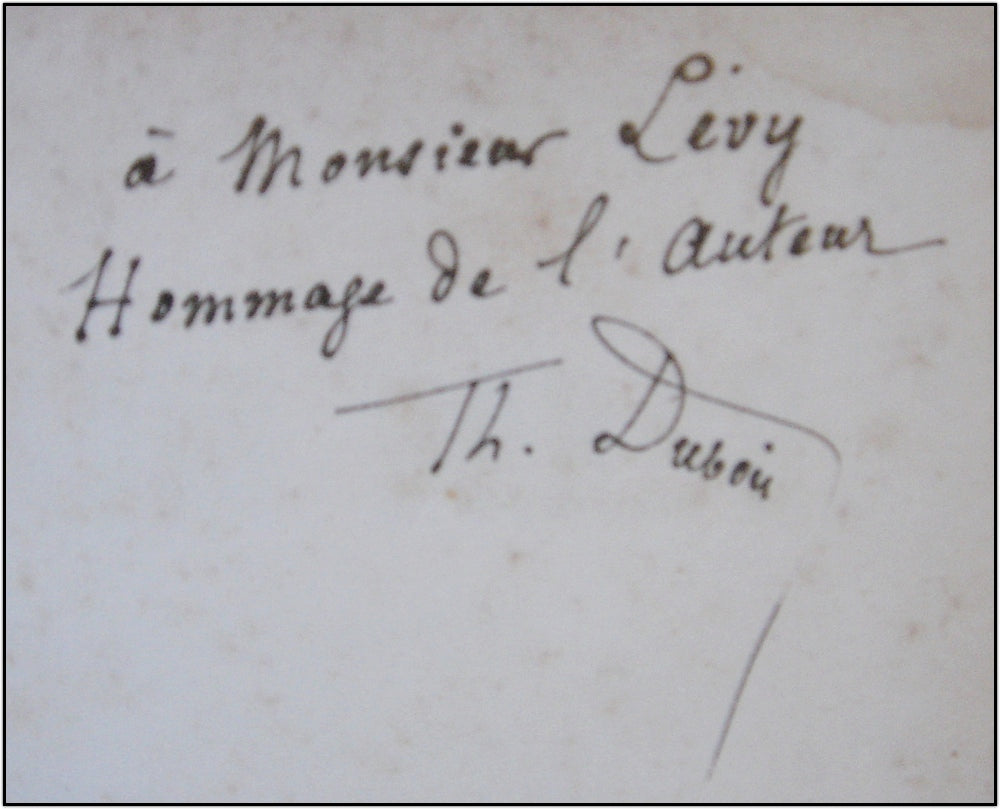 à Monsieur Lévy
Hommage de l'Auteur
Th. Dubois